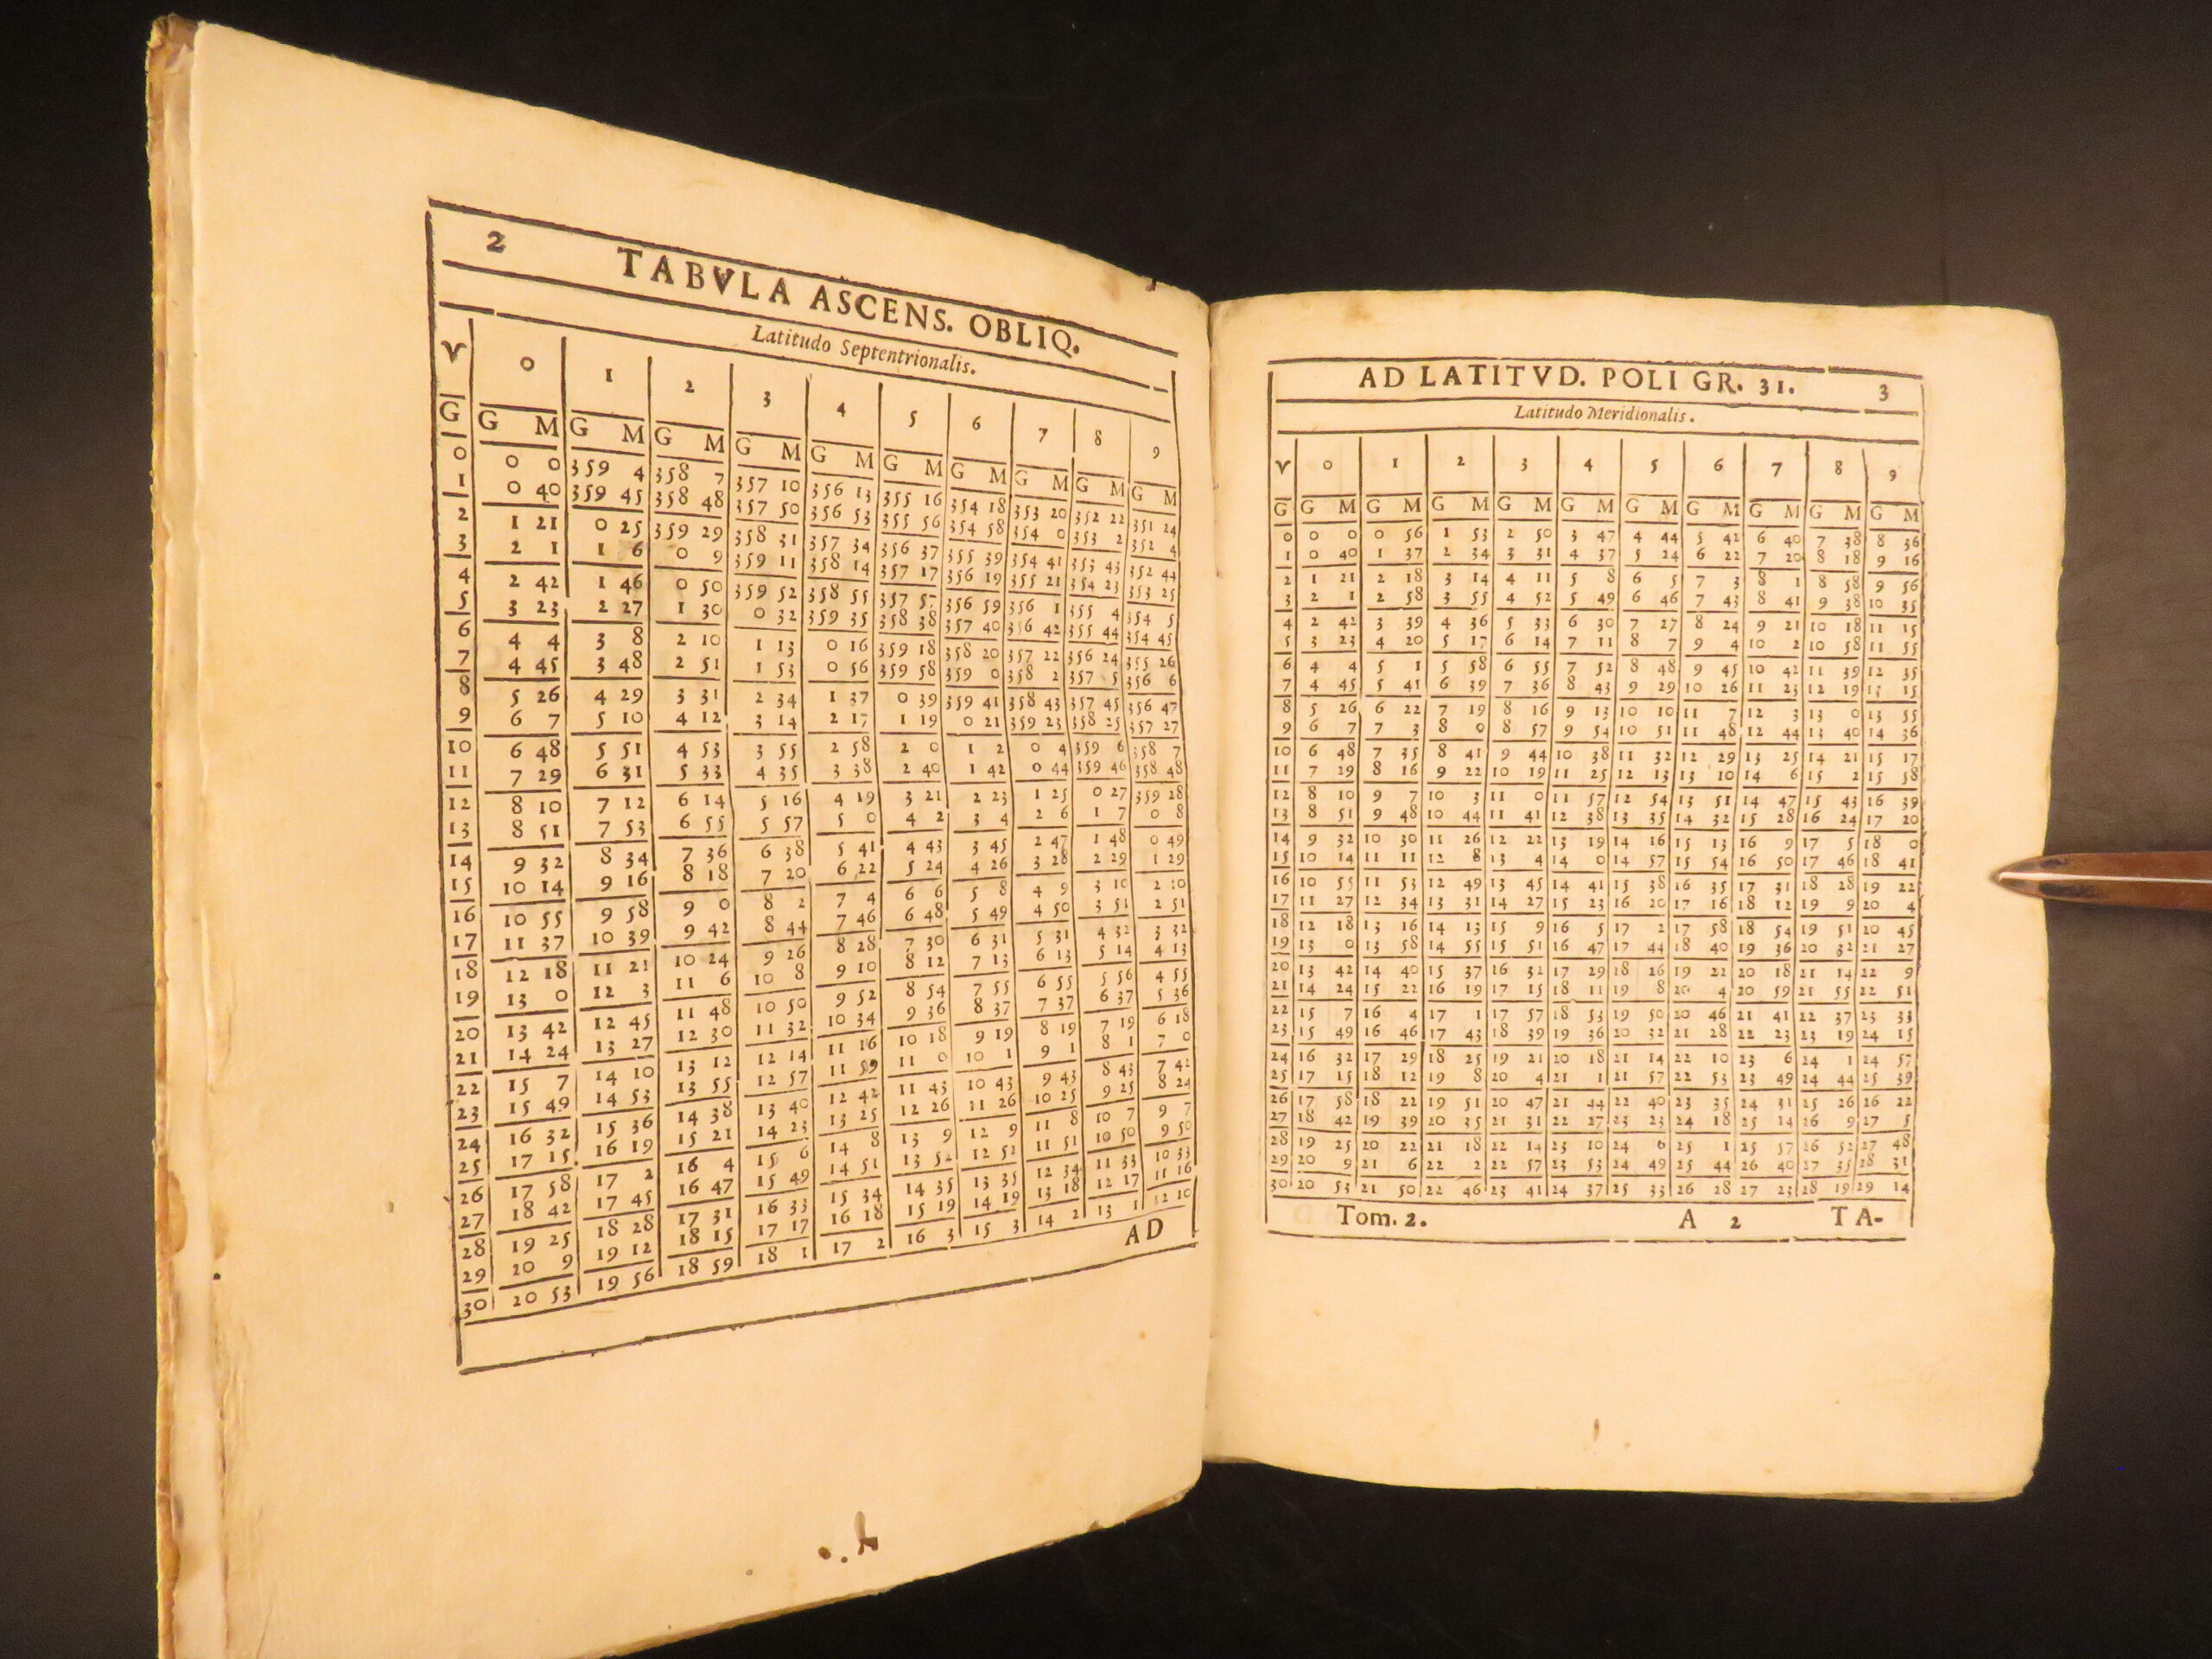 2 TABVLA ASCENS. OBLIQ.
Latitudo Septentrionalis.
♈ 0 1 2 3 4 5 6 7 8 9
G G M G M G M G M G M G M G M G M G M G M
0 0 0 359 4 358 7 357 10 356 13 355 16 354 18 353 20 352 22 351 24
1 0 40 359 45 358 48 357 50 356 53 355 56 354 58 354 0 353 2 352 4
2 1 21 0 25 359 29 358 31 357 34 356 37 355 39 354 41 353 43 352 44
3 2 1 1 6 0 9 359 11 358 14 357 17 356 19 355 21 354 23 353 25
4 2 42 1 46 0 50 359 52 358 55 357 57 356 59 356 1 355 4 354 5
5 3 23 2 27 1 30 0 32 359 35 358 38 357 40 356 42 355 44 354 45
6 4 4 3 8 2 10 1 13 0 16 359 18 358 20 357 22 356 24 355 26
7 4 45 3 48 2 51 1 53 0 56 359 58 359 0 358 2 357 5 356 6
8 5 26 4 29 3 31 2 34 1 37 0 39 359 41 358 43 357 45 356 47
9 6 7 5 10 4 12 3 14 2 17 1 19 0 21 359 23 358 25 357 27
10 6 48 5 51 4 53 3 55 2 58 2 0 1 2 0 4 359 6 358 7
11 7 29 6 31 5 33 4 35 3 38 2 40 1 42 0 44 359 46 358 48
12 8 10 7 12 6 14 5 16 4 19 3 21 2 23 1 25 0 27 359 28
13 8 51 7 53 6 55 5 57 5 0 4 2 3 4 2 6 1 7 0 8
14 9 32 8 34 7 36 6 38 5 41 4 43 3 45 2 47 1 48 0 49
15 10 14 9 16 8 18 7 20 6 22 5 24 4 26 3 28 2 29 1 29
16 10 55 9 58 9 0 8 2 7 4 6 6 5 8 4 9 3 10 2 10
17 11 37 10 39 9 42 8 44 7 46 6 48 5 49 4 50 3 51 2 51
18 12 18 11 21 10 24 9 26 8 28 7 30 6 31 5 31 4 32 3 32
19 13 0 12 3 11 6 10 8 9 10 8 12 7 13 6 13 5 14 4 13
20 13 42 12 45 11 48 10 50 9 52 8 54 7 55 6 55 5 56 4 55
21 14 24 13 27 12 30 11 32 10 34 9 36 8 37 7 37 6 37 5 36
22 15 7 14 10 13 12 12 14 11 16 10 18 9 19 8 19 7 19 6 18
23 15 49 14 53 13 55 12 57 11 59 11 0 10 1 9 1 8 1 7 0
24 16 32 15 36 14 38 13 40 12 42 11 43 10 43 9 43 8 43 7 42
25 17 15 16 19 15 21 14 23 13 25 12 26 11 26 10 25 9 25 8 24
26 17 58 17 2 16 4 15 6 14 8 13 9 12 9 11 8 10 7 9 7
27 18 42 17 45 16 47 15 49 14 51 13 52 12 52 11 51 10 50 9 50
28 19 25 18 28 17 31 16 33 15 34 14 35 13 35 12 34 11 33 10 33
29 20 9 19 12 18 15 17 17 16 18 15 19 14 19 13 18 12 17 11 16
30 20 53 19 56 18 59 18 1 17 2 16 3 15 3 14 2 13 1 12 10
AD
AD LATITVD. POLI GR. 31. 3
Latitudo Meridionalis.
♈ 0 1 2 3 4 5 6 7 8 9
G G M G M G M G M G M G M G M G M G M G M
0 0 0 0 56 1 53 2 50 3 47 4 44 5 42 6 40 7 38 8 36
1 0 40 1 37 2 34 3 31 4 37 5 24 6 22 7 20 8 18 9 16
2 1 21 2 18 3 14 4 11 5 8 6 5 7 3 8 1 8 58 9 56
3 2 1 2 58 3 55 4 52 5 49 6 46 7 43 8 41 9 38 10 35
4 2 42 3 39 4 36 5 33 6 30 7 27 8 24 9 21 10 18 11 15
5 3 23 4 20 5 17 6 14 7 11 8 7 9 4 10 2 10 58 11 55
6 4 4 5 1 5 58 6 55 7 52 8 48 9 45 10 42 11 39 12 35
7 4 45 5 41 6 39 7 36 8 43 9 29 10 26 11 23 12 19 13 15
8 5 26 6 22 7 19 8 16 9 13 10 10 11 7 12 3 13 0 13 55
9 6 7 7 3 8 0 8 57 9 54 10 51 11 48 12 44 13 40 14 36
10 6 48 7 35 8 41 9 44 10 38 11 32 12 29 13 25 14 21 15 17
11 7 29 8 16 9 22 10 19 11 25 12 13 13 10 14 6 15 2 15 58
12 8 10 9 7 10 3 11 0 11 57 12 54 13 51 14 47 15 43 16 39
13 8 51 9 48 10 44 11 41 12 38 13 35 14 32 15 28 16 24 17 20
14 9 32 10 30 11 26 12 22 13 19 14 16 15 13 16 9 17 5 18 0
15 10 14 11 11 12 8 13 4 14 0 14 57 15 54 16 50 17 46 18 41
16 10 55 11 53 12 49 13 45 14 41 15 38 16 35 17 31 18 28 19 22
17 11 27 12 34 13 31 14 27 15 23 16 20 17 16 18 12 19 9 20 4
18 12 18 13 16 14 13 15 9 16 5 17 2 17 58 18 54 19 51 20 45
19 13 0 13 58 14 55 15 51 16 47 17 44 18 40 19 36 20 32 21 27
20 13 42 14 40 15 37 16 32 17 29 18 26 19 22 20 18 21 14 22 9
21 14 24 15 22 16 19 17 15 18 11 19 8 20 4 20 59 21 55 22 51
22 15 7 16 4 17 1 17 57 18 53 19 50 20 46 21 41 22 37 23 33
23 15 49 16 46 17 43 18 39 19 36 20 32 21 28 22 23 23 19 24 15
24 16 32 17 29 18 25 19 21 20 18 21 14 22 10 23 6 24 1 24 57
25 17 15 18 12 19 8 20 4 21 1 21 57 22 53 23 49 24 44 25 39
26 17 58 18 22 19 51 20 47 21 44 22 40 23 35 24 31 25 26 26 22
27 18 42 19 39 20 35 21 31 22 27 23 23 24 18 25 14 26 9 27 5
28 19 25 20 22 21 18 22 14 23 10 24 6 25 1 25 57 26 52 27 48
29 20 9 21 6 22 2 22 57 23 53 24 49 25 44 26 40 27 35 28 31
30 20 53 21 50 22 46 23 41 24 37 25 33 26 28 27 23 28 19 29 14
Tom. 2. A 2 TA-